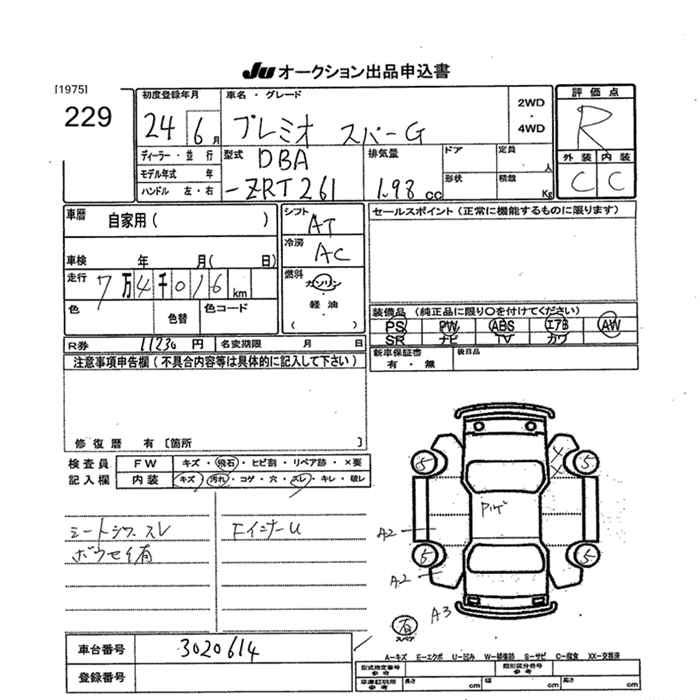 JU オークション出品申込書
[1975]
229
初度登録年月 車名・グレード
24 6月 プレミオ スパーG
2WD ・ 4WD
評価点
R
外装 内装
C C
ディーラー・並行
モデル年式 年
ハンドル 左・右
型式 DBA
-ZRT261
排気量
1.98 cc
ドア 定員 人
形状 積載 Kg
車暦 自家用( )
車検 年 月( 日)
走行 7万4千016 km
色 色替 色コード
シフト AT
冷房 AC
燃料 ガソリン
・
軽油
・
( )
セールスポイント(正常に機能するものに限ります)
装備品(純正品に限り○を付けてください)
PS PW ABS エアB AW
SR ナビ TV カワ
R券 11230 円 名変期限 月 日
新車保証書 後日品
有・無
注意事項申告欄(不具合内容等は具体的に記入して下さい)
修復暦 有[箇所 ]
検査員 FW キズ・飛石・ヒビ割・リペア跡・×要
記入欄 内装 キズ・汚れ・コゲ・穴・スレ・キレ・破レ
シートシワ スレ
Fインナーu
5 5 XX
A2
5 5
A2
A3
スペア
車台番号 3020614
登録番号
A−キズ E−エクボ U−凹み W−補修跡 S−サビ C−腐食 XX−交換済
型式指定番号 参考 類別区分番号 参考
車庫証明用 参考 長さ cm 幅 cm 高さ cm